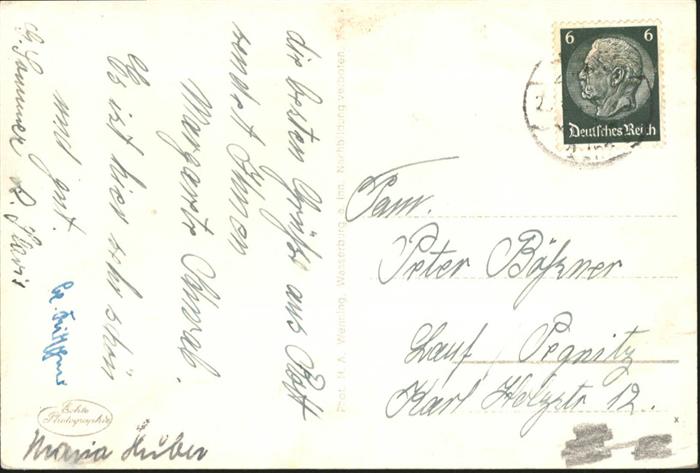 die besten Grüße aus Rott
sendet Ihnen
Margarete Schwab.
Es ist hier sehr schön
und gut.
Maria Huber
Echte
Photographie
Phot. H. A. Wenning, Wasserburg a. Inn. Nachbildung verboten.
6 6
Deutsches Reich
Fam.
Peter Bößner
Lauf / Pegnitz
Karl Holzstr 12.
x